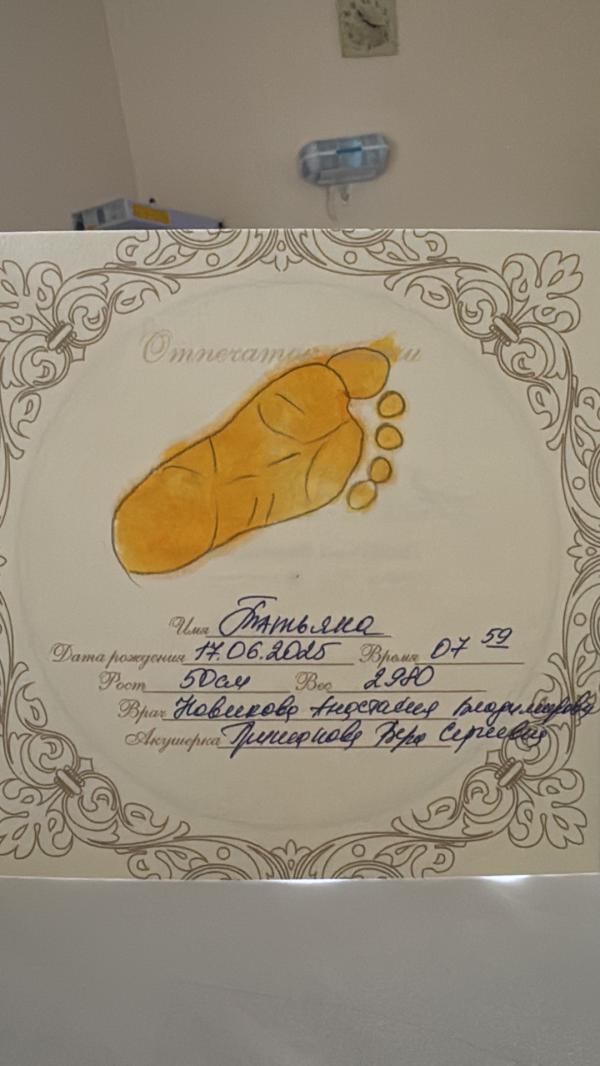 Отпечаток
Имя Татьяна
Дата рождения 17.06.2025 Время 07 59
Рост 50см Вес 2980
Врач Новикова Анастасия Владимировна
Акушерка Вера Сергеевна